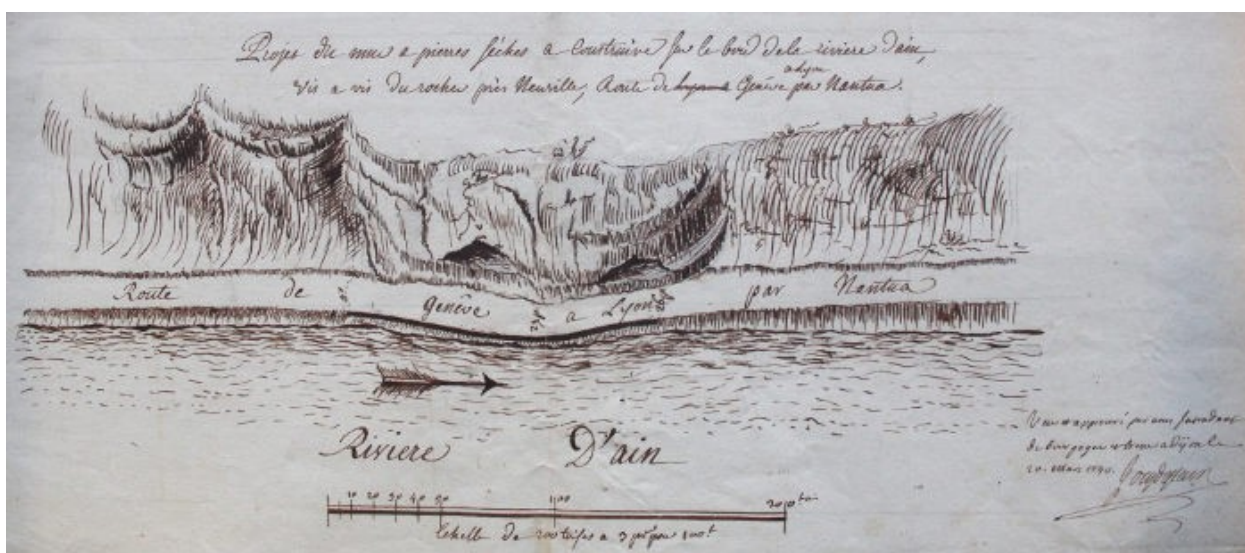 Projet du mur a pierres sèches a Construire sur le bord de la riviere d'ain,
vis a vis du rocher près Neuville, Route de Genêve a lyon par Nantua.
Route de Genêve a Lyon par Nantua
Riviere D'ain
10 20 30 40 50 100 200
Echelle de 200 toises a 3 pour 100
Vu et approuvé par nous Intendant
de bourgogne a dijon le
20. Mars